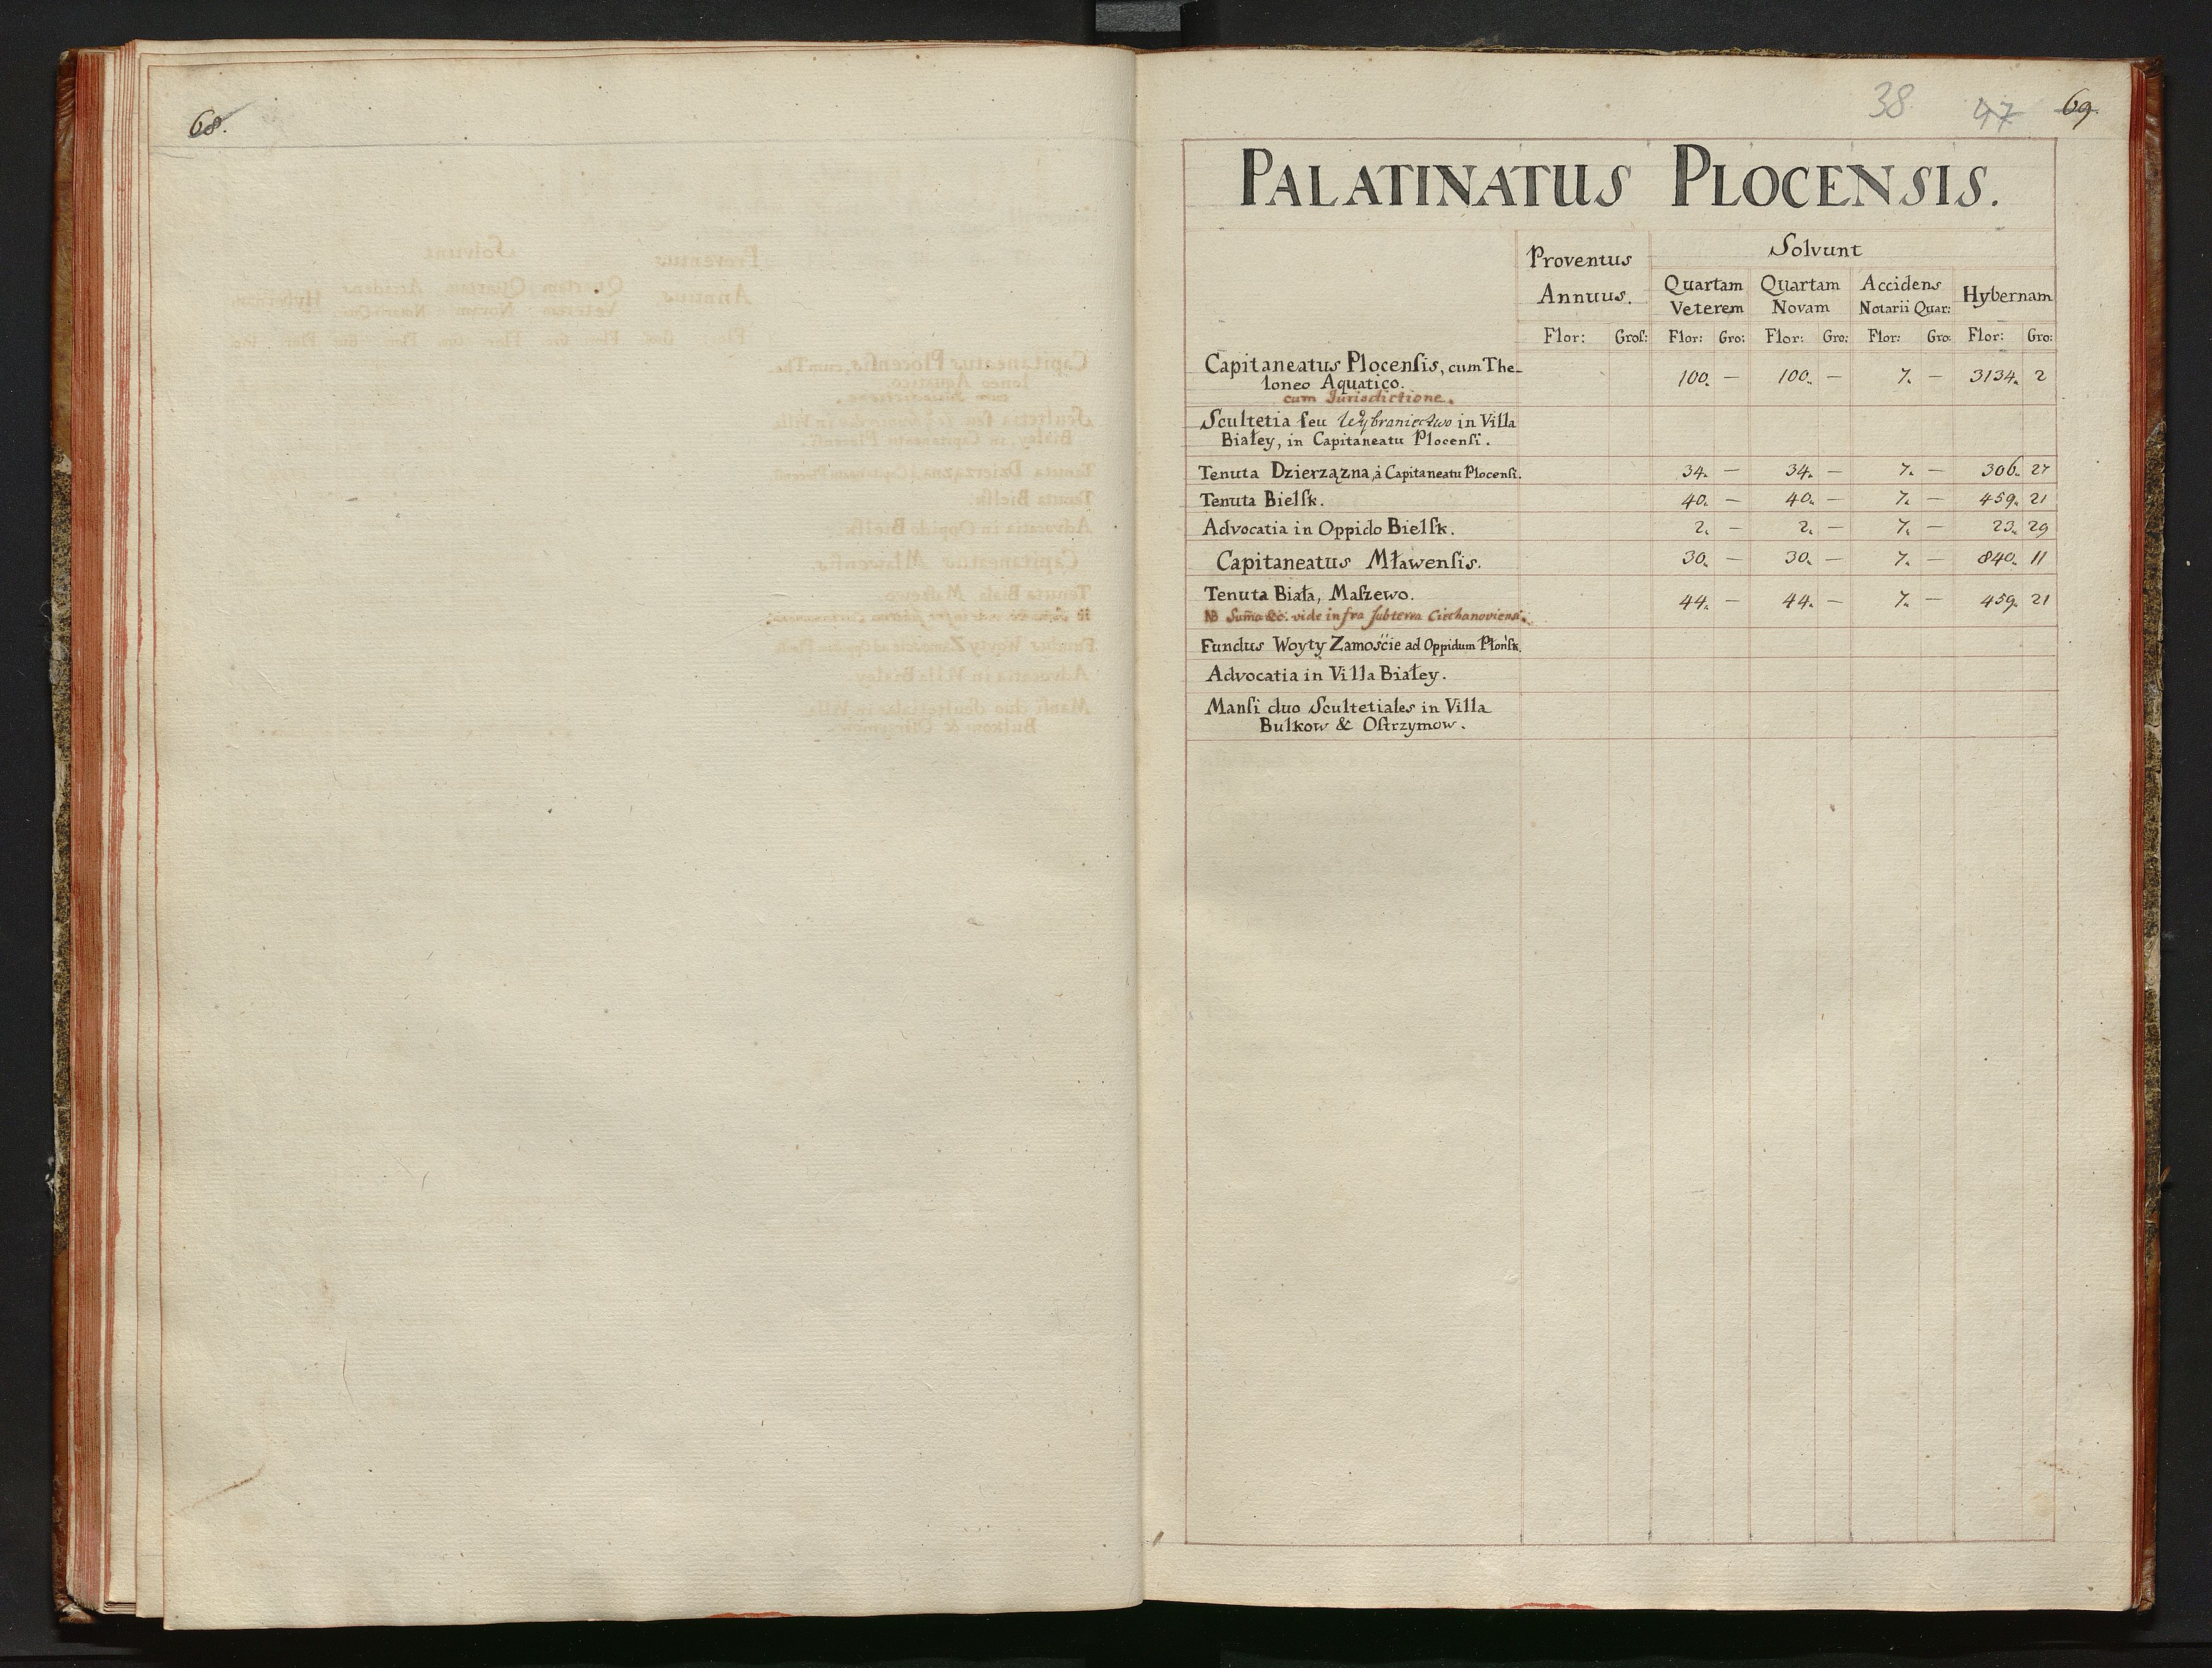 68.
38 47 69.
PALATINATUS PLOCENSIS.
Proventus Annuus. Solvunt
Quartam Veterem Quartam Novam Accidens Notarii Quar: Hybernam
Flor: Groſ: Flor: Gro: Flor: Gro: Flor: Gro: Flor: Gro:
Capitaneatus Plocenſis, cum The-
loneo Aquatico. 100. — 100. — 7. — 3134. 2
cum Jurisdictione.
Scultetia ſeu Wybraniectwo in Villa
Białey, in Capitaneatu Plocenſi.
Tenuta Dzierzązna, à Capitaneatu Plocenſi. 34. — 34. — 7. — 306. 27
Tenuta Bielſk. 40. — 40. — 7. — 459. 21
Advocatia in Oppido Bielſk. 2. — 2. — 7. — 23. 29
Capitaneatus Mławenſis. 30. — 30. — 7. — 840. 11
Tenuta Biała, Maſzewo. 44. — 44. — 7. — 459. 21
NB Sum̃a &c. vide infra ſub terra Ciechanoviensi.
Fundus Woyty Zamoście ad Oppidum Płońſk.
Advocatia in Villa Białey.
Manſi duo Scultetiales in Villa
Bulkow & Oſtrzymow.